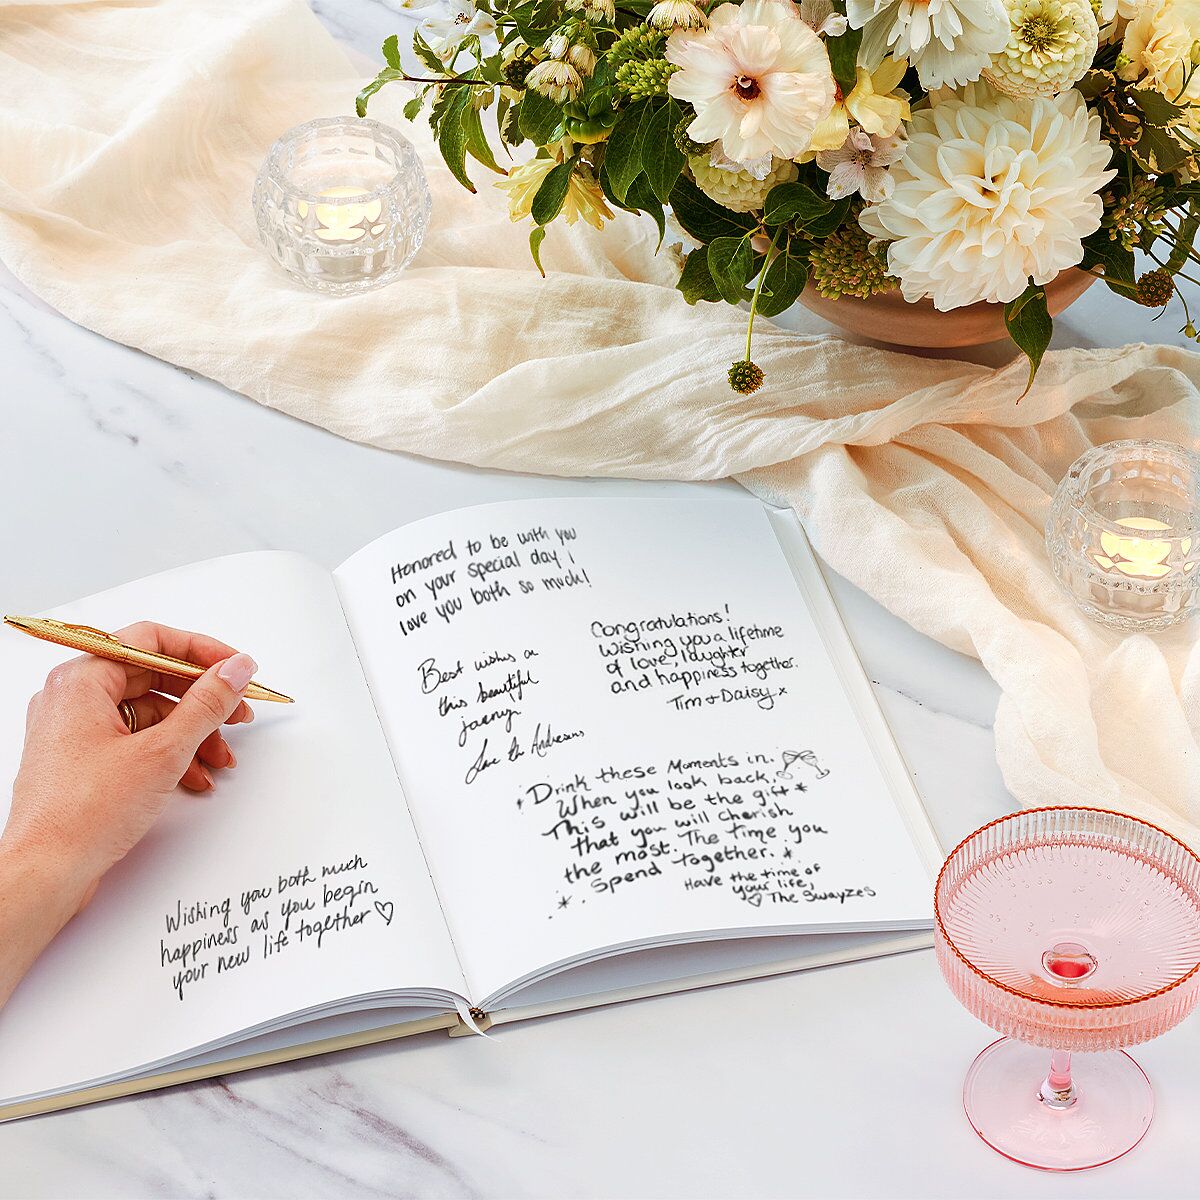 Wishing you both much
happiness as you begin
your new life together ♡
Honored to be with you
on your special day I
love you both so much!
Congratulations!
Wishing you a lifetime
of love, laughter
and happiness together.
Tim + Daisy x
Best wishes on
this beautiful
journey
Love the Andersens
Drink these Moments in.
When you look back,
This will be the gift *
that you will cherish
the most. The time you
spend together. *
Have the time of
your life,
♡ The Swayzes